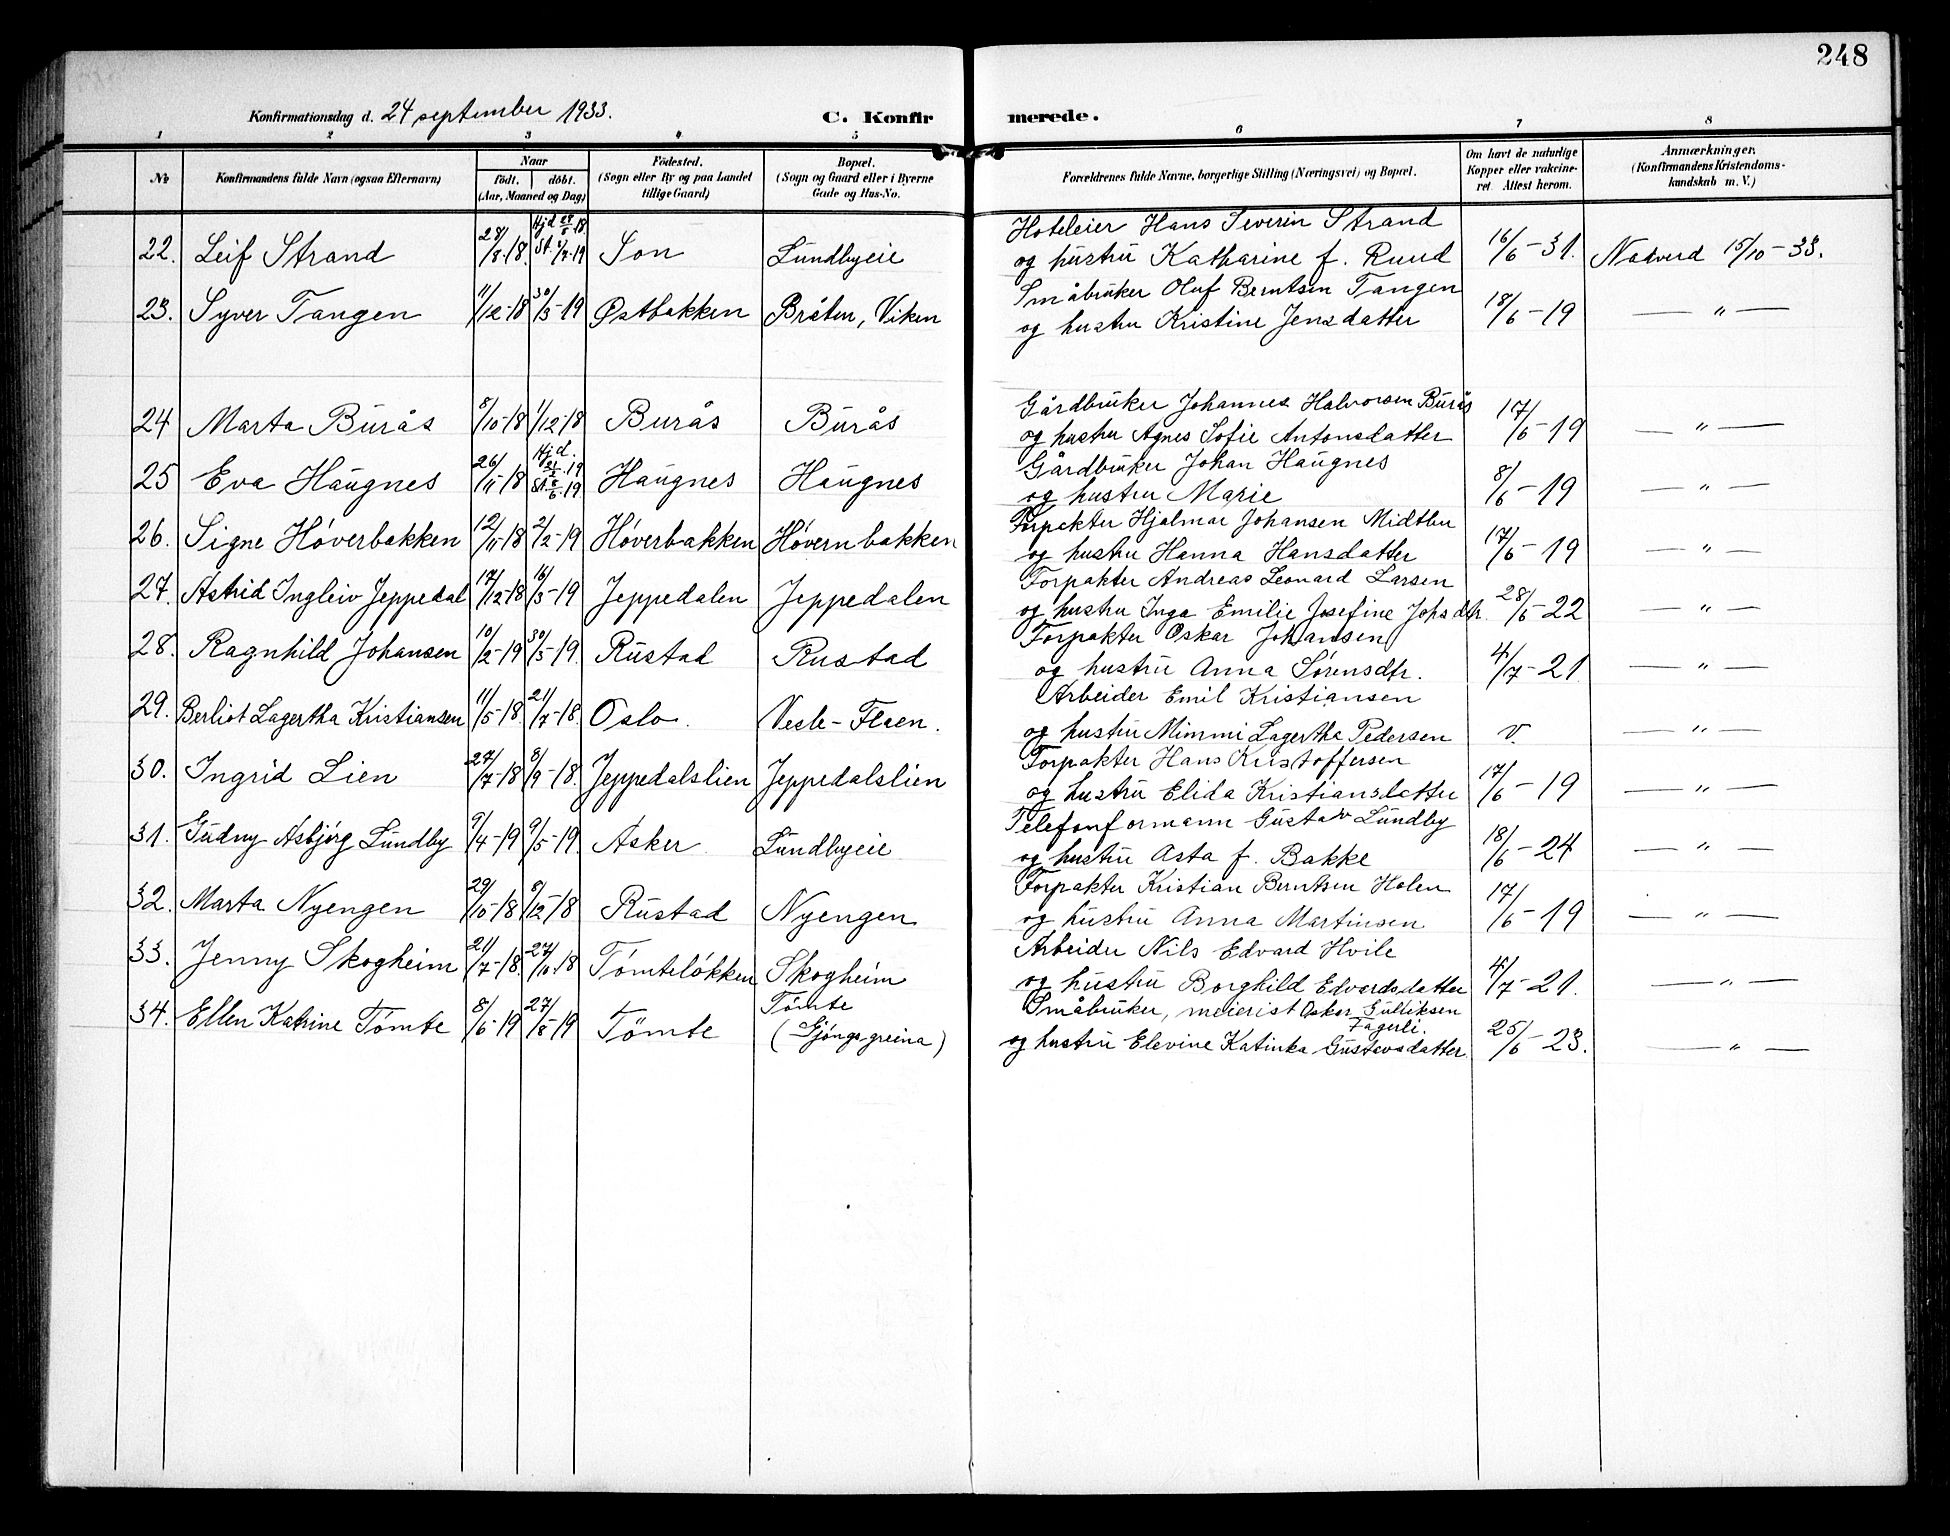 248
Konfirmationsdag d. 24 september 1933. C. Konfirmerede.
1 2 3 4 5 6 7 8
№ Konfirmandens fulde Navn (ogsaa Efternavn) Naar født. døbt. (Aar, Maaned og Dag) Fødested. (Sogn eller By og paa Landet tillige Gaard) Bopæl. (Sogn og Gaard eller i Byerne Gade og Hus-No. Forældrenes fulde Navne, borgerlige Stilling (Næringsvei) og Bopæl. Om havt de naturlige Kopper eller vakcineret. Attest herom. Anmærkninger. (Konfirmandens Kristendomskundskab m. V.)
22. Leif Strand 28/8-18. Hjd 28/8-18 St. /9-19 Son Lundbyeie Hoteleier Hans Severin Strand
og hustru Katharine f. Ruud 16/6-31. Nadverd 15/10-33.
23. Syver Tangen 11/12-18 30/3-19 Østbakken Bråten, Viken Småbruker Oluf Berntsen Tangen
og hustru Kristine Jensdatter 18/6-19 — " —
24 Marta Burås 8/10-18 1/12-18 Burås Burås Gårdbruker Johannes Halvorsen Burås
og hustru Agnes Sofie Antonsdatter 17/6-19 — " —
25 Eva Haugnes 26/11-18 Hjd. 21/2.19 St. 8/6.19 Haugnes Haugnes Gårdbruker Johan Haugnes
og hustru Marie 8/6-19 — " —
26. Signe Høverbakken 12/11-18 2/2-19 Høverbakken Høvernbakken Forpakter Hjalmar Johansen Midtbu
og hustru Hanna Hansdatter 17/6-19 — " —
27. Astrid Ingleiv Jeppedal 17/12-18 16/3-19 Jeppedalen Jeppedalen Forpakter Andreas Leonard Larsen
og hustru Inga Emilie Josefine Johsdtr. 28/6-22 — " —
28. Ragnhild Johansen 10/2-19 30/5-19. Rustad Rustad Forpakter Oskar Johansen
og hustru Anna Sørensdtr. 4/7-21 — " —
29. Berliot Lagertha Kristiansen 11/5-18. 21/7-18. Oslo. Vesle-Flaen. Arbeider Emil Kristiansen
og hustru Mimmi Lagertha Pedersen v. — " —
30. Ingrid Lien 27/7-18 8/9-18. Jeppedalslien Jeppedalslien Forpakter Hans Kristoffersen
og hustru Elida Kristiansdatter 17/6-19 — " —
31. Gudny Asbjørg Lundby 9/4-19 9/5-19. Asker Lundbyeie Telefonformann Gustav Lundby
og hustru Asta f. Bakke 18/6-24 — " —
32. Marta Nyengen 29/10-18 8/12-18 Rustad Nyengen Forpakter Kristian Berntsen Holen
og hustru Anna Martinsen 17/6-19 — " —
33. Jenny Skogheim 21/7-18. 27/10.18 Tømteløkken Skogheim Arbeider Nils Edvard Hvile
og hustru Borghild Edvardsdatter 4/7-21. — " —
34. Ellen Katrine Tømte 8/6-19 27/8-19 Tømte Tømte (Gjøngsgreina) Småbruker, meierist Oskar Gulliksen Fagerli.
og hustru Elevine Katinka Gustavsdatter 25/6-23. — " —